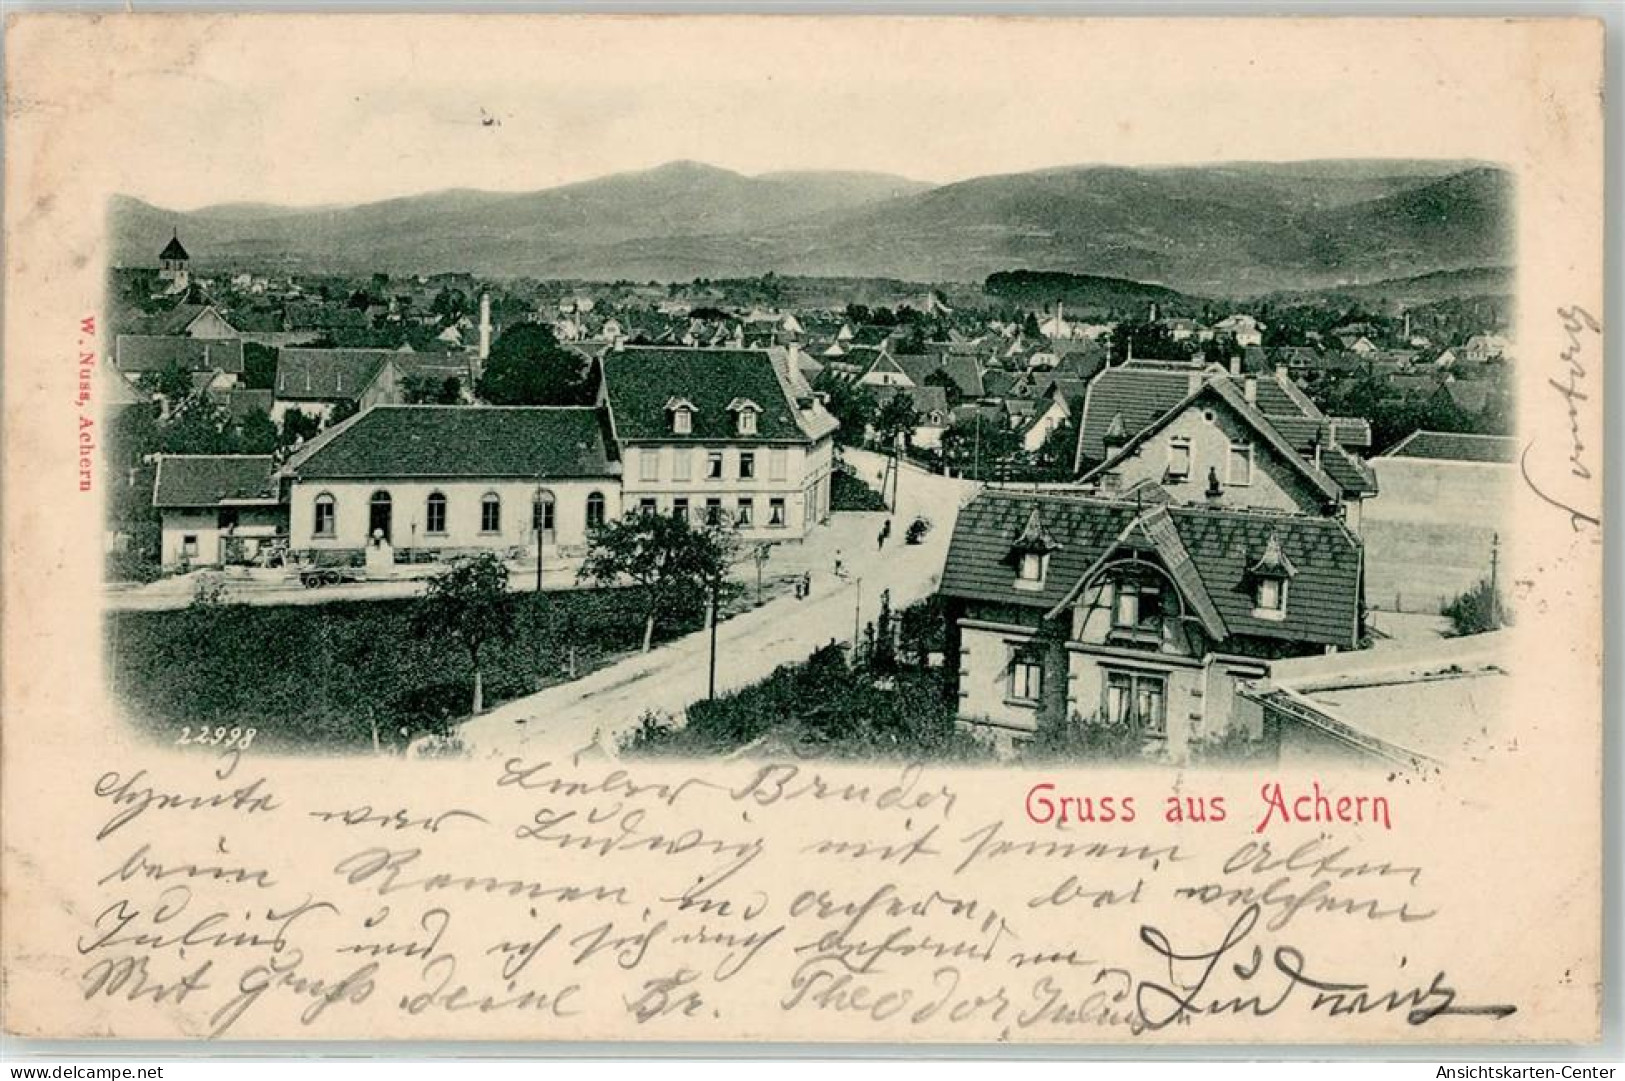 W. Nuss, Achern
22998
Gruss aus Achern
Lieber Bruder
Heute war Ludwig mit seinem Alten
beim Rennen in Achern, bei welchem
Julius und ich sich auch befanden.
Mit Gruß Deine Br. Theodor Julius u
Ludwig
oldthing.de
Ansichtskarten-Center